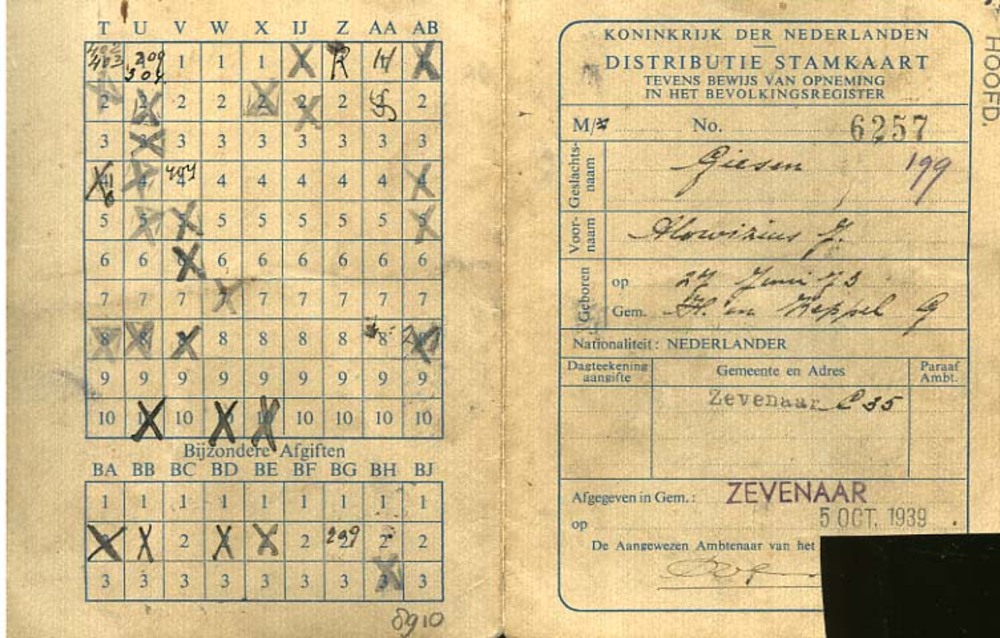 T U V W X IJ Z AA AB
402
403 209 1 1 1 R H
304
2 2 2 2 2 2 2
3 3 3 3 3 3 3 3 3
4 404 4 4 4 4 4 4
5 5 5 5 5 5 5 5 5
6 6 6 6 6 6 6 6
7 7 7 7 7 7 7 7
8 8 8 8 8 8 8 8
9 9 9 9 9 9 9 9 9
10 10 10 10 10 10 10
Bijzondere Afgiften
BA BB BC BD BE BF BG BH BJ
1 1 1 1 1 1 1 1 1
2 2 299 2 2
3 3 3 3 3 3 3 3 3
8910
KONINKRIJK DER NEDERLANDEN
DISTRIBUTIE STAMKAART
TEVENS BEWIJS VAN OPNEMING
IN HET BEVOLKINGSREGISTER
M/ No. 6257
Geslachts-
naam Giesen 199
Voor-
naam Alowizius J.
Geboren op 27 Juni 73
Gem. H. en Keppel G
Nationaliteit: NEDERLANDER
Dagteekening
aangifte Gemeente en Adres Paraaf
Ambt.
Zevenaar C 35
Afgegeven in Gem.: ZEVENAAR
op 5 OCT. 1939
De Aangewezen Ambtenaar van het
HOOFD.